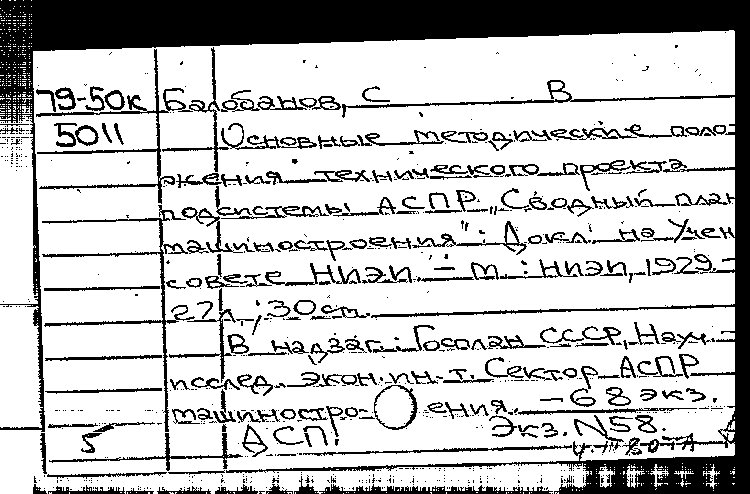 79-50к Балобанов, С В
5011 Основные методические поло-
жения технического проекта
подсистемы АСПР „Сводный план
машиностроения": Докл. на Учен
совете НИЭИ. – М.: НИЭИ, 1929. –
27л.; 30см.
В надзаг.: Госплан СССР, Науч. –
исслед. экон. ин-т. Сектор АСПР
машиностро- ения. – 68 экз.
Экз. N58.
5 ДСП!